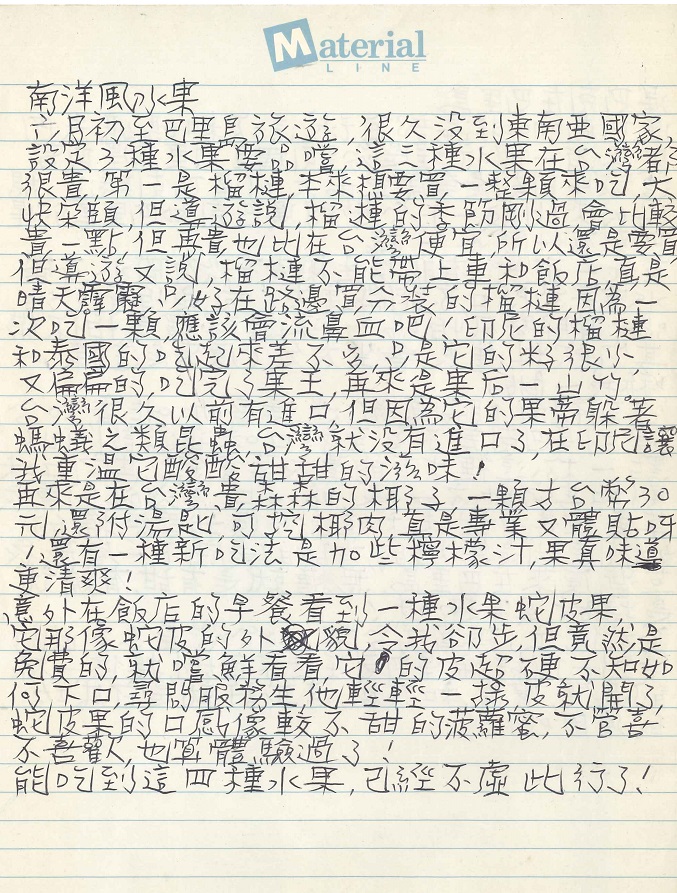 Material
LINE
南洋風水果
六月初至巴里島旅遊,很久没到東南亜國家,
設定了種水果要品嚐,這三種水果在台灣都
很貴,第一是榴槤,本來想要買一整顆來吃,大
快朵頤,但導遊說,榴槤的季節剛過會比較
貴一點,但再貴也比在台灣便宜,所以還是要買
但導遊又說,榴槤不能帶上車和飯店,真是
晴天霹靂,只好在路邊買分裝的榴槤,因為一
次吃一顆,應該會流鼻血吧!印尼的榴槤
和泰國的吃起來差不多,只是它的籽很小,
又扁扁的,吃完了果王,再來是果后一山竹。
台灣很久以前有進口,但因為它的果蒂躲著
螞蟻之類昆蟲,台灣就没有進口了,在印尼讓
我重温它酸酸甜甜的滋味!
再來是在台灣貴森森的椰子,一顆才台幣30
元,還附湯匙,可挖椰肉,真是專業又體貼呀
!還有一種新吃法是加些檸檬汁,果真味道
更清爽!
意外在飯店的早餐看到一種水果蛇皮果,
它那像蛇皮的外貌,令我卻步,但竟然是
免費的,就嚐鮮看看,它的皮超硬不知如
何下口,尋問服務生,他輕輕一搓,皮就開了,
蛇皮果的口感像較不甜的菠蘿蜜,不管喜
不喜歡,也算體驗過了!
能吃到這四種水果,已經不虛此行了!